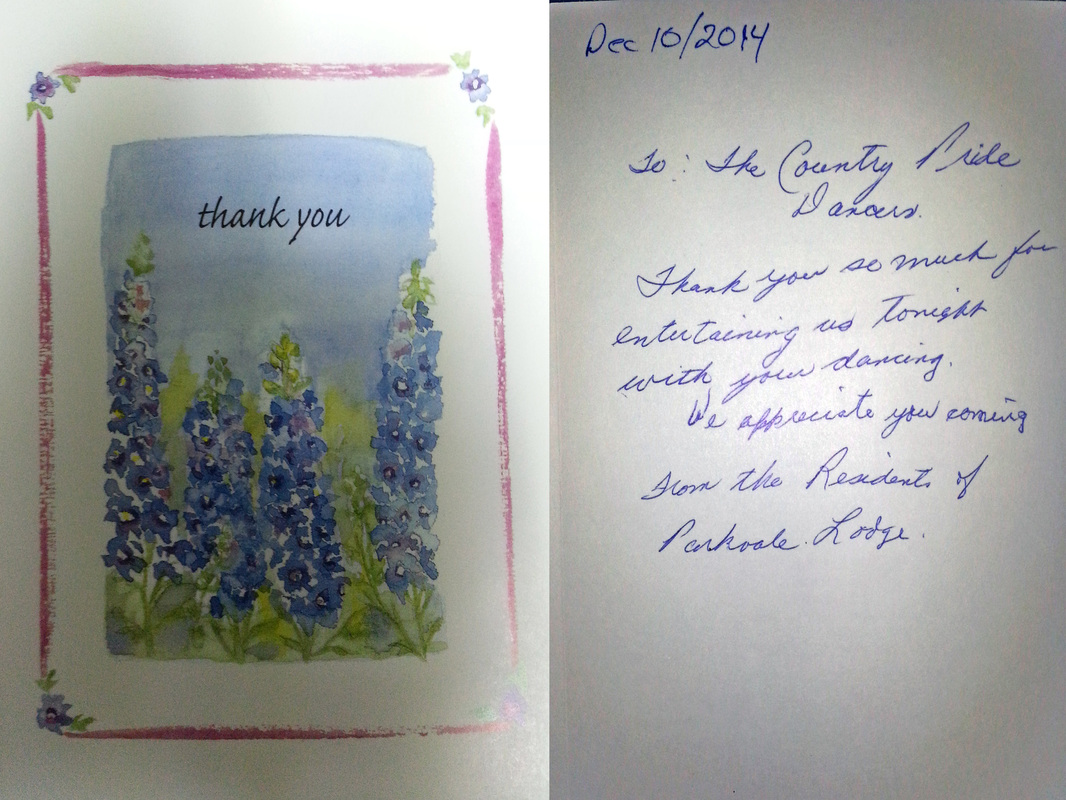 thank you
Dec 10/2014
To: The Country Pride
Dancers.
Thank you so much for
entertaining us tonight
with your dancing.
We appreciate you coming
From the Residents of
Parkvale Lodge.